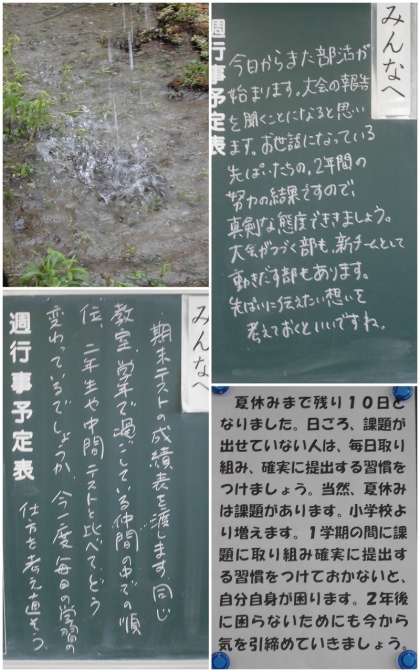 みんなへ
今日からまた部活が
始まります。大会の報告
を聞くことになると思い
ます。お世話になっている
先ぱいたちの、2年間の
努力の結果ですので、
真剣な態度できましょう。
大会がつづく部も、新チームとして
動きだす部もあります。
先ぱいに伝えたい想いを
考えておくといいですね。
週行事予定表
みんなへ
期末テストの成績表を渡します。同じ
教室、学年で過ごしている仲間の中での順
位、二年生や中間テストと比べてどう
変わっているでしょうか。今一度毎日の学習の
仕方を考え直そう。
週行事予定表
夏休みまで残り１０日と
なりました。日ごろ、課題が
出せていない人は、毎日取り
組み、確実に提出する習慣を
つけましょう。当然、夏休み
は課題があります。小学校よ
り増えます。１学期の間に課
題に取り組み確実に提出す
る習慣をつけておかないと、
自分自身が困ります。２年後
に困らないためにも今から
気を引締めていきましょう。